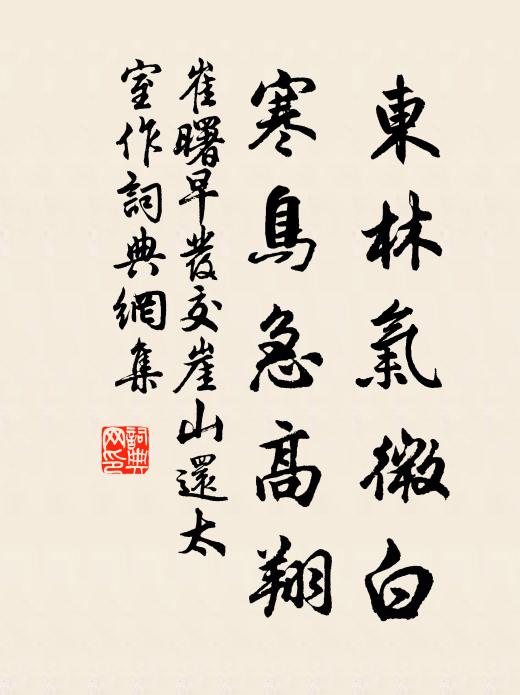 東林氣微白
寒鳥急高翔
崔曙早發交崖山還太
室作詞典網集
詞典
网印